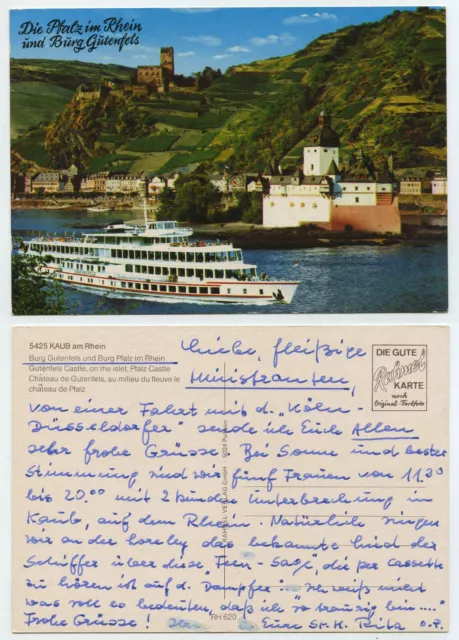 Die Pfalz im Rhein
und Burg Gutenfels
5425 KAUB am Rhein
Burg Gutenfels und Burg Pfalz im Rhein
Gutenfels Castle, on the islet, Pfalz Castle
Château de Gutenfels, au milieu du fleuve le
château de Pfalz
DIE GUTE
Rahmel
KARTE
nach
Original-Farbfoto
RAHMEL-VERLAG GMBH · 5024 Pulheim
RH 620
Liebe, fleißige
Ministranten,
von einer Fahrt mit d. "Köln-
Düsseldorfer" sende ich Euch Allen
sehr frohe Grüsse. Bei Sonne und bester
Stimmung sind wir fünf Frauen von 11.30
bis 20.00 mit 2 Stunden Unterbrechung in
Kaub, auf dem Rhein. Natürlich singen
wir an der Loreley das bekannte Lied der
Schiffer über diese "Feen-Sage", die per Cassette
zu hören ist auf d. Dampfer. "Ich weiß nicht
was soll es bedeuten, daß ich so traurig bin...."
Frohe Grüsse! Eure Sr. M. Rita O.P.